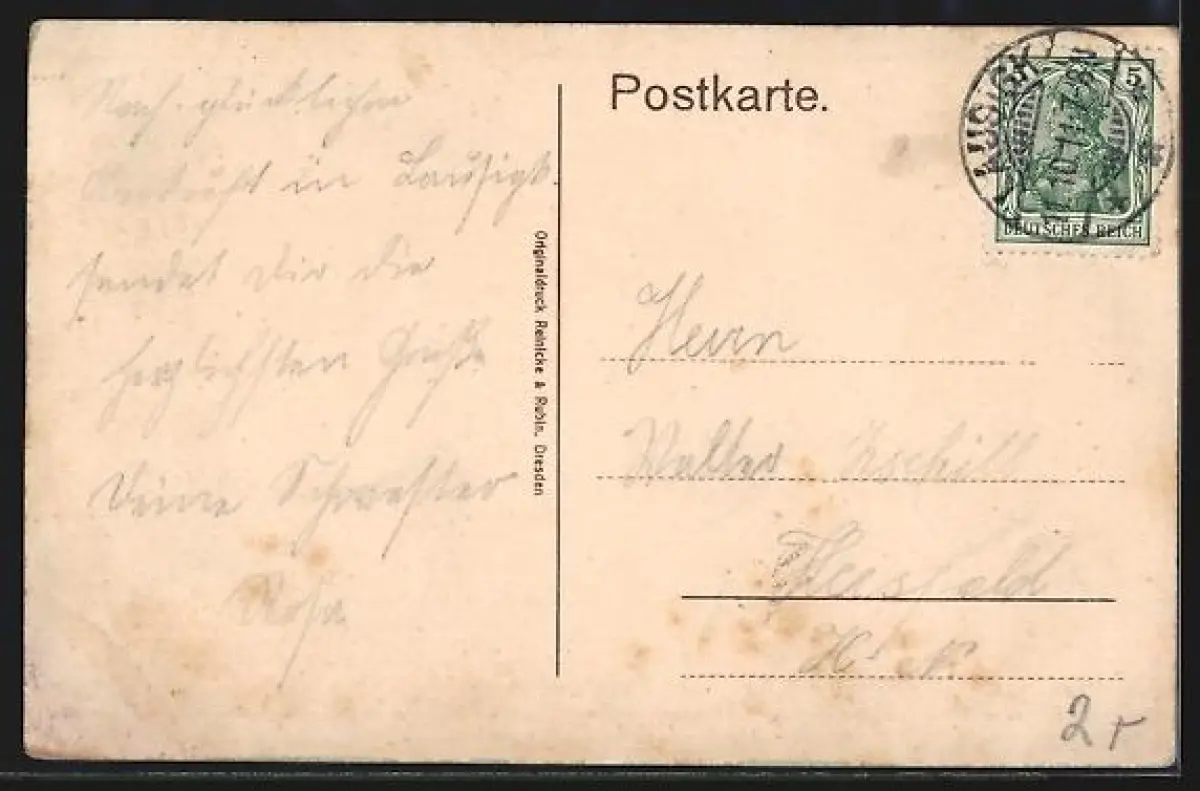 Nach glücklicher
Ankunft in Lausigk
sendet Dir die
herzlichsten Grüße
Deine Schwester
Rosa
Originaldruck Reinicke & Rubin, Dresden
Postkarte.
LAUSIGK
5
DEUTSCHES REICH
Herrn
Walter
2